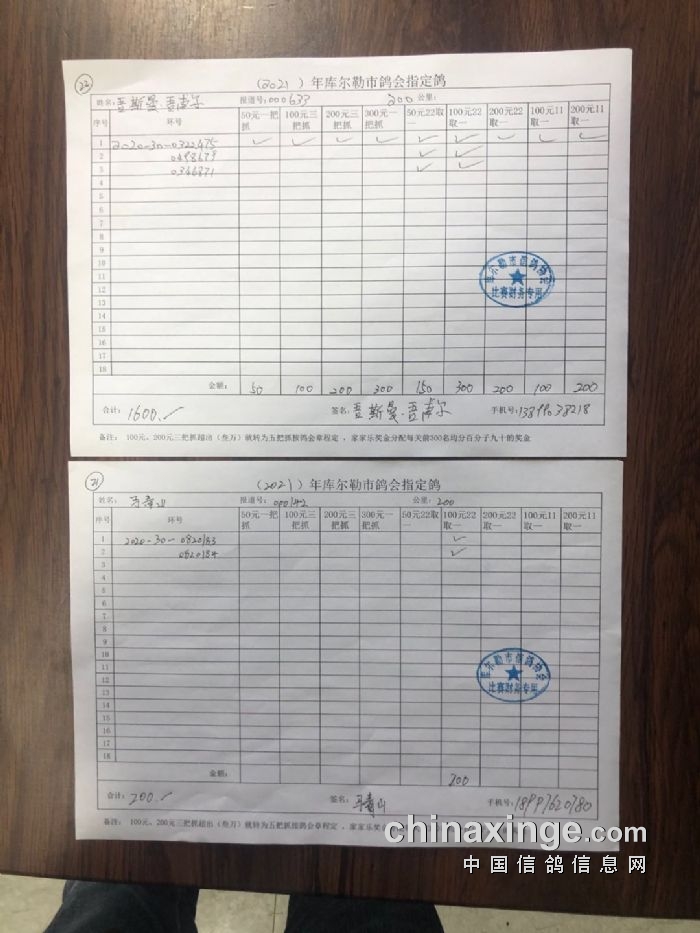 22
(2021)年库尔勒市鸽会指定鸽
姓名: 吾斯曼.吾甫尔 报道号: 000633 200 公里:
序号 环号 50元一把抓 100元三把抓 200元三把抓 300元一把抓 50元22取一 100元22取一 200元22取一 100元11取一 200元11取一
1 2020-30-0322475 ✓ ✓ ✓ ✓ ✓ ✓ ✓ ✓ ✓
2 0498679 ✓ ✓
3 0346871 ✓ ✓
4
5
6
7
8
9
10
11
12
13
14
15
16
17
18
金额: 50 100 200 300 150 300 200 100 200
合计: 1600.✓ 签名: 吾斯曼.吾甫尔 手机号: 13899038218
备注: 100元、200元三把抓超出(叁万)就转为五把抓按鸽会章程定,家家乐奖金分配每天前300名均分百分子九十的奖金
库尔勒市信鸽协会
比赛财务专用
21
(2021)年库尔勒市鸽会指定鸽
姓名: 报道号: 000142 公里: 200
序号 环号 50元一把抓 100元三把抓 200元三把抓 300元一把抓 50元22取一 100元22取一 200元22取一 100元11取一 200元11取一
1 2020-30-0820183 ✓
2 0820184 ✓
3
4
5
6
7
8
9
10
11
12
13
14
15
16
17
18
金额: 200
合计: 200.✓ 签名: 手机号: 18997620780
备注: 100元、200元三把抓超出(叁万)就转为五把抓按鸽会章程定,家家乐奖金
库尔勒市信鸽协会
比赛财务专用
chinaxinge.com
中国信鸽信息网